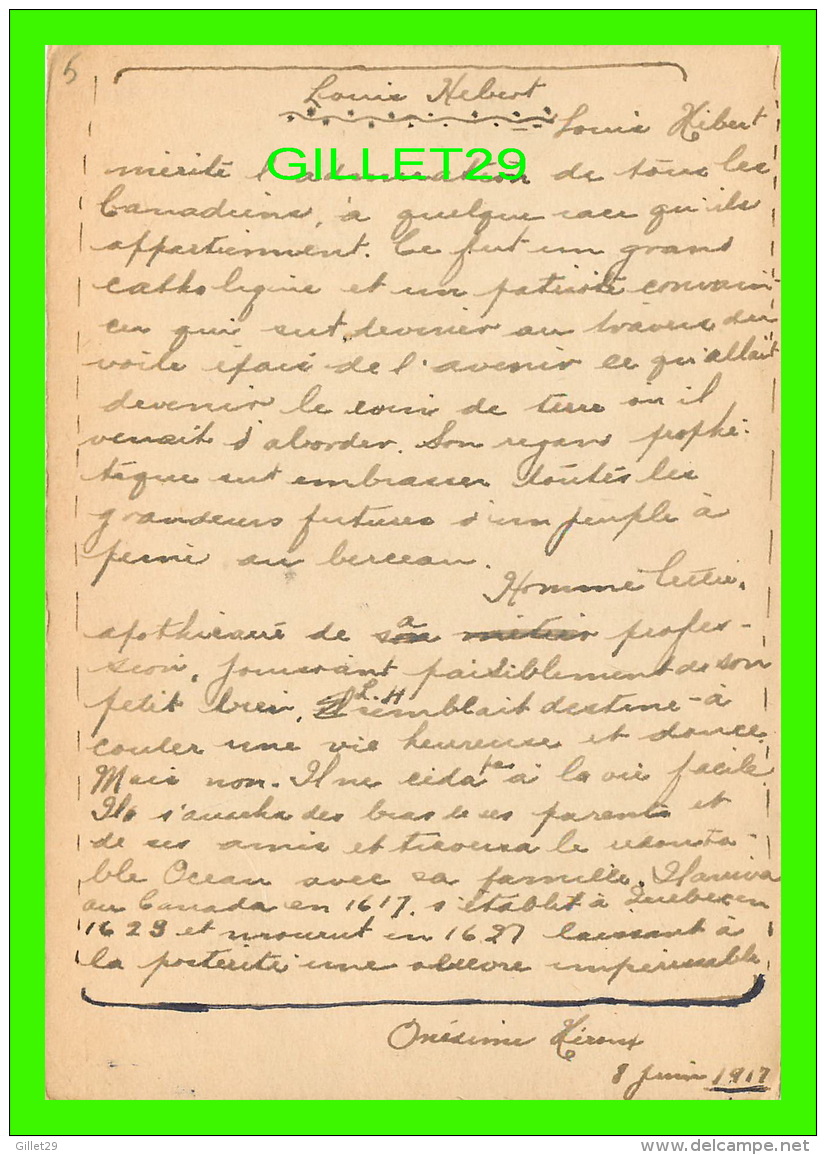 5
Louis Hebert
Louis Hébert
GILLET29
mérite l'admiration de tous les
Canadiens, à quelque race qu'ils
appartiennent. Ce fut un grand
catholique et un patriote convain-
cu qui sut deviner au travers du
voile épais de l'avenir ce qu'allait
devenir le coin de terre où il
venait d'aborder. Son regard prophé-
tique sut embrasser toutes les
grandeurs futures d'un peuple à
peine au berceau.
Homme lettré,
apothicaire de sa profes-
sion, jouissant paisiblement de son
petit bien, L. H. semblait destiné à
couler une vie heureuse et douce.
Mais non. Il ne céda pas à la vie facile.
Il s'arracha des bras de ses parents et
de ses amis et traversa le redouta-
ble Océan avec sa famille. Il arriva
au Canada en 1617, s'établit à Québec en
1623 et mourut en 1627 laissant à
la postérité une oeuvre impérissable
Onésime Héroux
8 juin 1917
Gillet29
www.delcampe.net